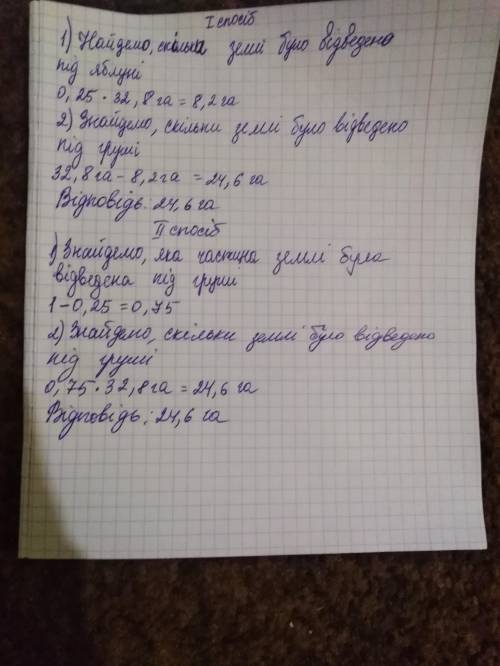 I спосіб
1) Найдемо, скілька землі було відведена
під яблуні
0,25 · 32,8 га = 8,2 га
2) Знайдемо, скільки землі було відведено
під груші
32,8 га – 8,2 га = 24,6 га
Відповідь. 24,6 га
II спосіб
1) Знайдемо, яка частина землі була
відведена під груші
1 – 0,25 = 0,75
2) Знайдемо, скільки землі було відведено
під груші
0,75 · 32,8 га = 24,6 га
Відповідь: 24,6 га